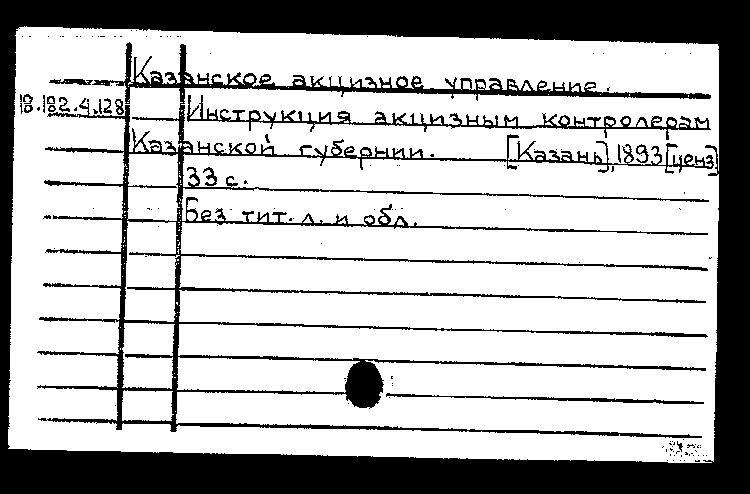 Казанское акцизное управление.
18.182.4.128 Инструкция акцизным контролерам
Казанской губернии. [Казань], 1893 [ценз]
33 с.
Без тит. л. и обл.